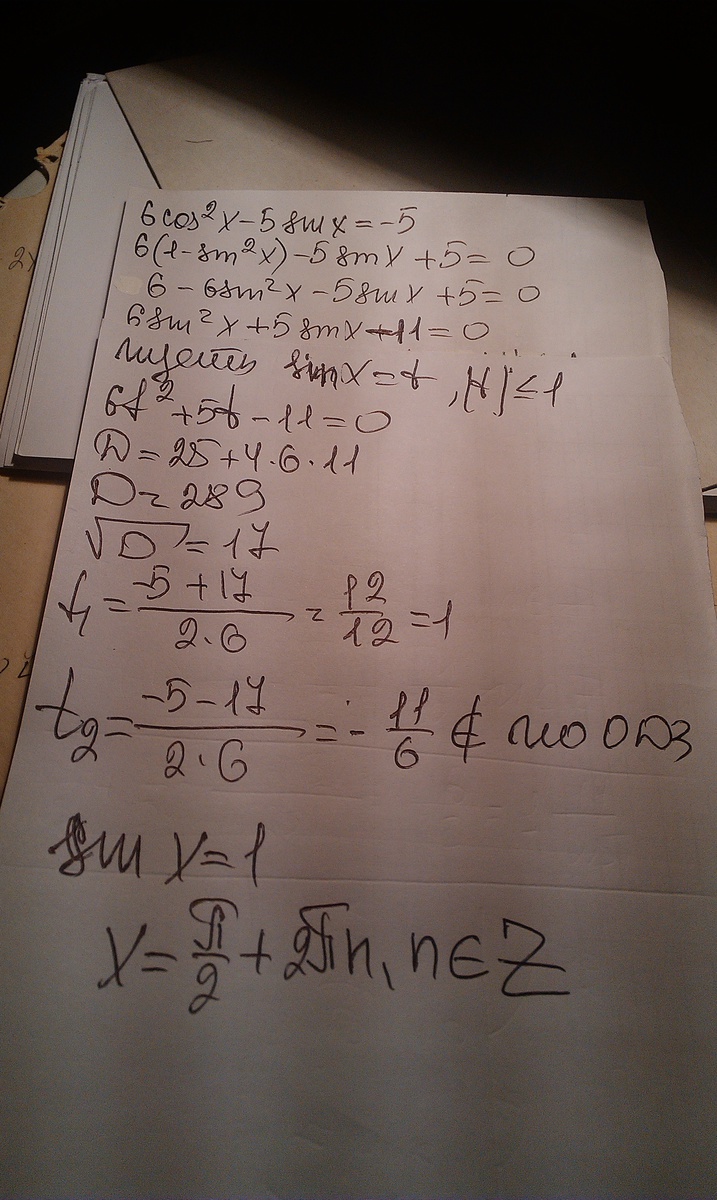 6cos²x-5sinx=-5
6(1-sin²x)-5sinx+5=0
6-6sin²x-5sinx+5=0
6sin²x+5sinx-11=0
пусть sinx=t, |t|≤1
6t²+5t-11=0
D=25+4·6·11
D=289
√D=17
t₁=(-5+17)/(2·6)=12/12=1
t₂=(-5-17)/(2·6)=-11/6 ∉ по ОДЗ
sin x=1
x=π/2+2πn, n∈Z